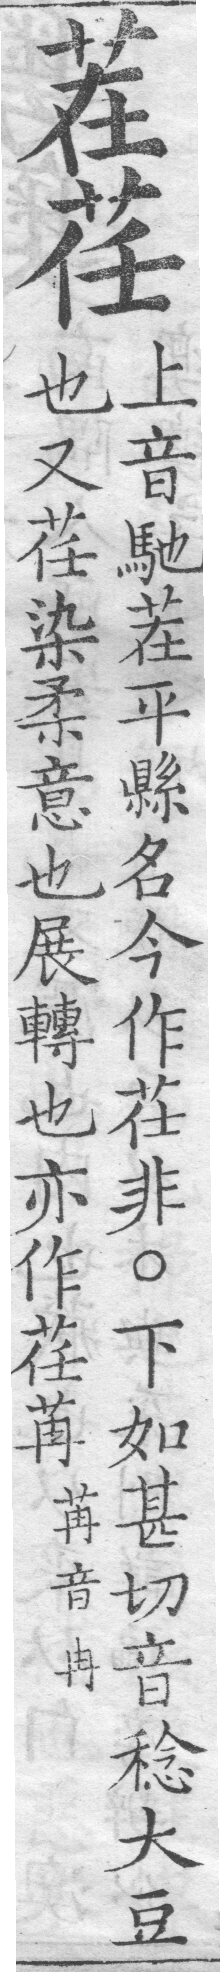 茬荏
上音馳茬平縣名今作茌非○下如甚切音稔大豆
也又荏染柔意也展轉也亦作荏苒苒音冉